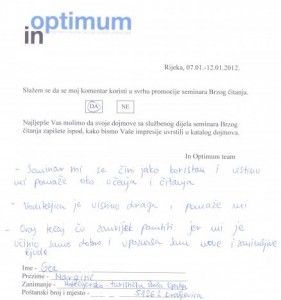 optimum
in
Rijeka, 07.01.-12.01.2012.
Slažem se da se moj komentar koristi u svrhu promocije seminara Brzog čitanja.
DA NE
Najljepše Vas molimo da svoje dojmove sa službenog dijela seminara Brzog
čitanja zapišete ispod, kako bismo Vaše impresije uvrstili u katalog dojmova.
In Optimum team
- Seminar mi se čini jako koristan i uistinu
mi pomaže oko učenja i čitanja
- Voditeljica je uistinu draga i pomaže mi
- Ovaj tečaj ću zauvijek pamtiti jer mi je
učinio samo dobro i upoznala sam nove i zanimljive
ljude
Ime - Gea
Prezime -
Zanimanje - turistička škola Opatija
Poštanski broj i mjesto - Kraljevica